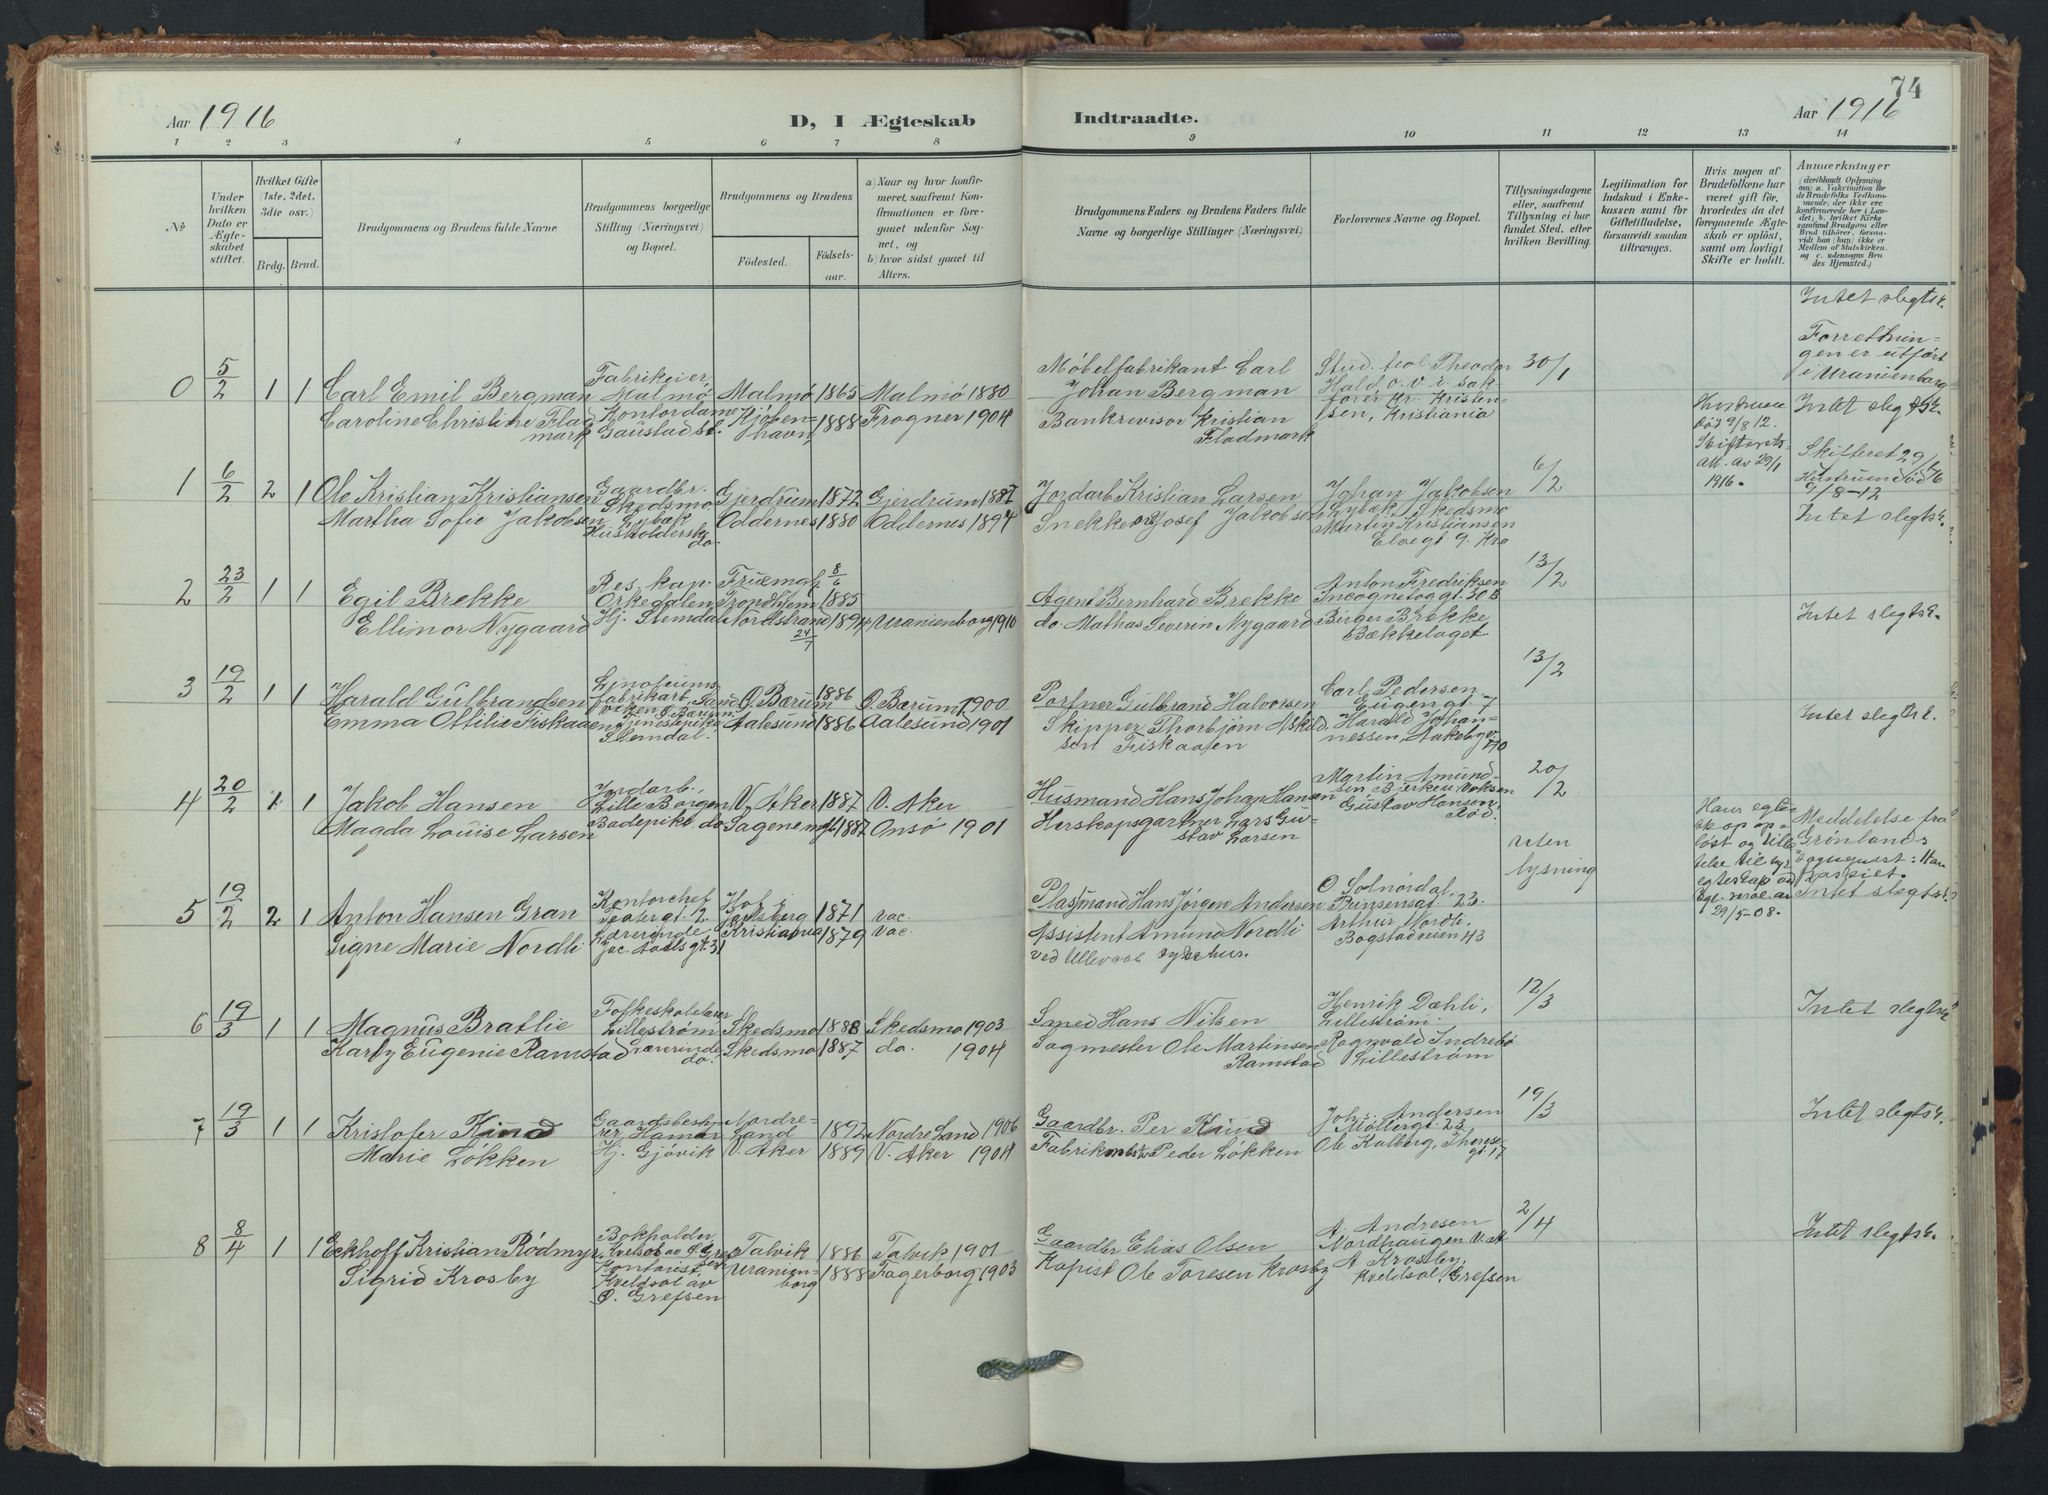 74
Aar 1916
D, I Ægteskab
Indtraadte.
Aar 1916
1 2 3 4 5 6 7 8 9 10 11 12 13 14
No
Under hvilken Dato er Ægteskabet stiftet.
Hvilket Gifte (1ste, 2det, 3die osv.)
Brdg. Brud.
Brudgommens og Brudens fulde Navne
Brudgommens borgerlige Stilling (Næringsvei) og Bopæl.
Brudgommens og Brudens
Fødested.
Fødselsaar.
a) Naar og hvor konfirmeret, saafremt Konfirmationen er foregaaet udenfor Sognet, og
b) hvor sidst gaaet til Alters.
Brudgommens Faders og Brudens Faders fulde Navne og borgerlige Stillinger (Næringsvei)
Forlovernes Navne og Bopæl.
Tillysningsdagene eller, saafremt Tillysning ei har fundet Sted, efter hvilken Bevilling.
Legitimation for Indskud i Enkekassen samt for Giftetilladelse, forsaavidt saadan tiltrænges.
Hvis nogen af Brudefolkene har været gift før, hvorledes da det foregaaende Ægteskab er opløst, samt om lovligt Skifte er holdt.
Anmærkninger
(deriblandt Oplysning om: a. Vakcination for de Brudefolks Vedkommende, der ikke ere konfirmerede her i Landet; b. hvilket Kirkesamfund Brudgom eller Brud tilhører, forsaavidt han (hun) ikke er Medlem af Statskirken og c. udensogns Brudes Hjemsted.)
0 5/2 1 1 Carl Emil Bergman
Fabrikeier, Malmö
Malmö 1865 Malmö 1880
Møbelfabrikant Carl Johan Bergman
Stud. teol Theodor Hald, o.v.r. sakfører Kr. Kristensen, Kristiania
30/1
Intet slegtsk.
Forretningen er utført i Uranienborg
Caroline Christine Fladmark
Kontordame Gaustad st.
Kjøbenhavn 1888 Frogner 1904
Bankrevisor Kristian Fladmark
Intet slegtsk.
1 6/2 2 1 Ole Kristian Kristiansen
Gaardbr. Skedsmo
Gjerdrum 1872 Gjerdrum 1887
Jordarb Kristian Larsen
Johan Jakobsen
6/2
Hustruen død 9/8 12. Skifteretsatt. av 29/1 1916.
Skifteret 29/1 16
Hustruen död 9/8-12
Intet slegtsk.
Martha Sofie Jakobsen
Oddernes 1880 Oddernes 1894
Snekker Josef Jakobsen
Martin Kristiansen Elvegt 9. Kra
2 23/2 1 1 Egil Brekke
Res. kap. Orkedalen
Trondhjem 8/6 1885
Agent Bernhard Brekke
Anton Fredriksen Incognitogt. 30 B
13/2
Ellinor Nygaard
Hj. Slemdal
Nordstrand 1894 24/7 Uranienborg 1910
do Mathias Severin Nygaard
Birger Brekke Bækkelaget
Intet slegtsk.
3 19/2 1 1 Harald Gulbrandsen
Ø. Bærum 1886 Ø. Bærum 1900
Portner Gulbrand Halvorsen
Carl Pedersen Eugengt 7
13/2
Emma Ottilie Fiskaaen
Tjenestepike Slemdal.
Aalesund 1886 Aalesund 1901
Skipper Thorbjørn Askildsen Fiskaaen
Harald Johannessen, Aakebgvn 40
Intet slegtsk.
4 20/2 1 1 Jakob Hansen
Jordarb., Lille Borgen
V. Aker 1887 V. Aker
Husmand Hans Johan Hansen
Martin Amundsen, Bjerken Voksen
20/2
Magda Louise Larsen
Badepike do
Sagene mgh 1887 Onsö 1901
Herskapsgartner Lars Gustav Larsen
Gustav Hansen, Röd.
5 19/2 2 1 Anton Hansen Gran
Kontorchef Teatergt 2.
Hof i Jarlsberg 1871 vac.
Plasmand Hans Jørgen Andersen
O Solnördal, Funsensgt 23.
uten lysning
Hans egteskap opløst og tilladelse til nyt egteskap ved kgl. resol. av 29/5-08.
Meddelelse fra Grønlands sogneprest: Haraspiet.
Intet slegtsk.
Signe Marie Nordli
Lærerinde, Jac. Aalls gt. 31
Kristiania 1879 vac.
Assistent Amund Nordli ved Ullevaal sykehus.
Arthur Nordli Bogstadveien 43
6 19/3 1 1 Magnus Bratlie
Folkeskolelærer Lillestrøm
Skedsmo 1888 Skedsmo 1903
Smed Hans Nilsen
Henrik Dæhli, Lillestrøm.
12/3
Intet slegtsk.
Karly Eugenie Ramstad
Lærerinde do.
Skedsmo 1887 do. 1904
Sagmester Ole Martinsen Ramstad
Ragnvald Indrebö Lillestrøm
7 19/3 1 1 Kristofer Kind
Gaardsbestyrer Hamar
Nordre Land 1892 Nordre Land 1906
Gaardbr. Per Kind
Johs. Andersen Møllergt 23
19/3
Intet slegtsk.
Marie Løkken
Hj. Gjøvik
V. Aker 1889 V. Aker 1904
Fabrikmester Peder Løkken
Ole Kalberg, Theresegt. 17
8 8/4 1 1 Eckhoff Kristian Rödmyr
Bokholder Kveldsol av Ø Grefsen
Talvik 1886 Talvik 1901
Gaardbr Elias Olsen
A. Andresen Nordhaugen V. A
2/4
Intet slegtsk.
Sigrid Krosby
Kontorist Kveldsol av Ø. Grefsen
Uranienborg 1888 Fagerborg 1903
Kopist Ole Toresen Krosby
A Krosby, Kveldsol, Grefsen